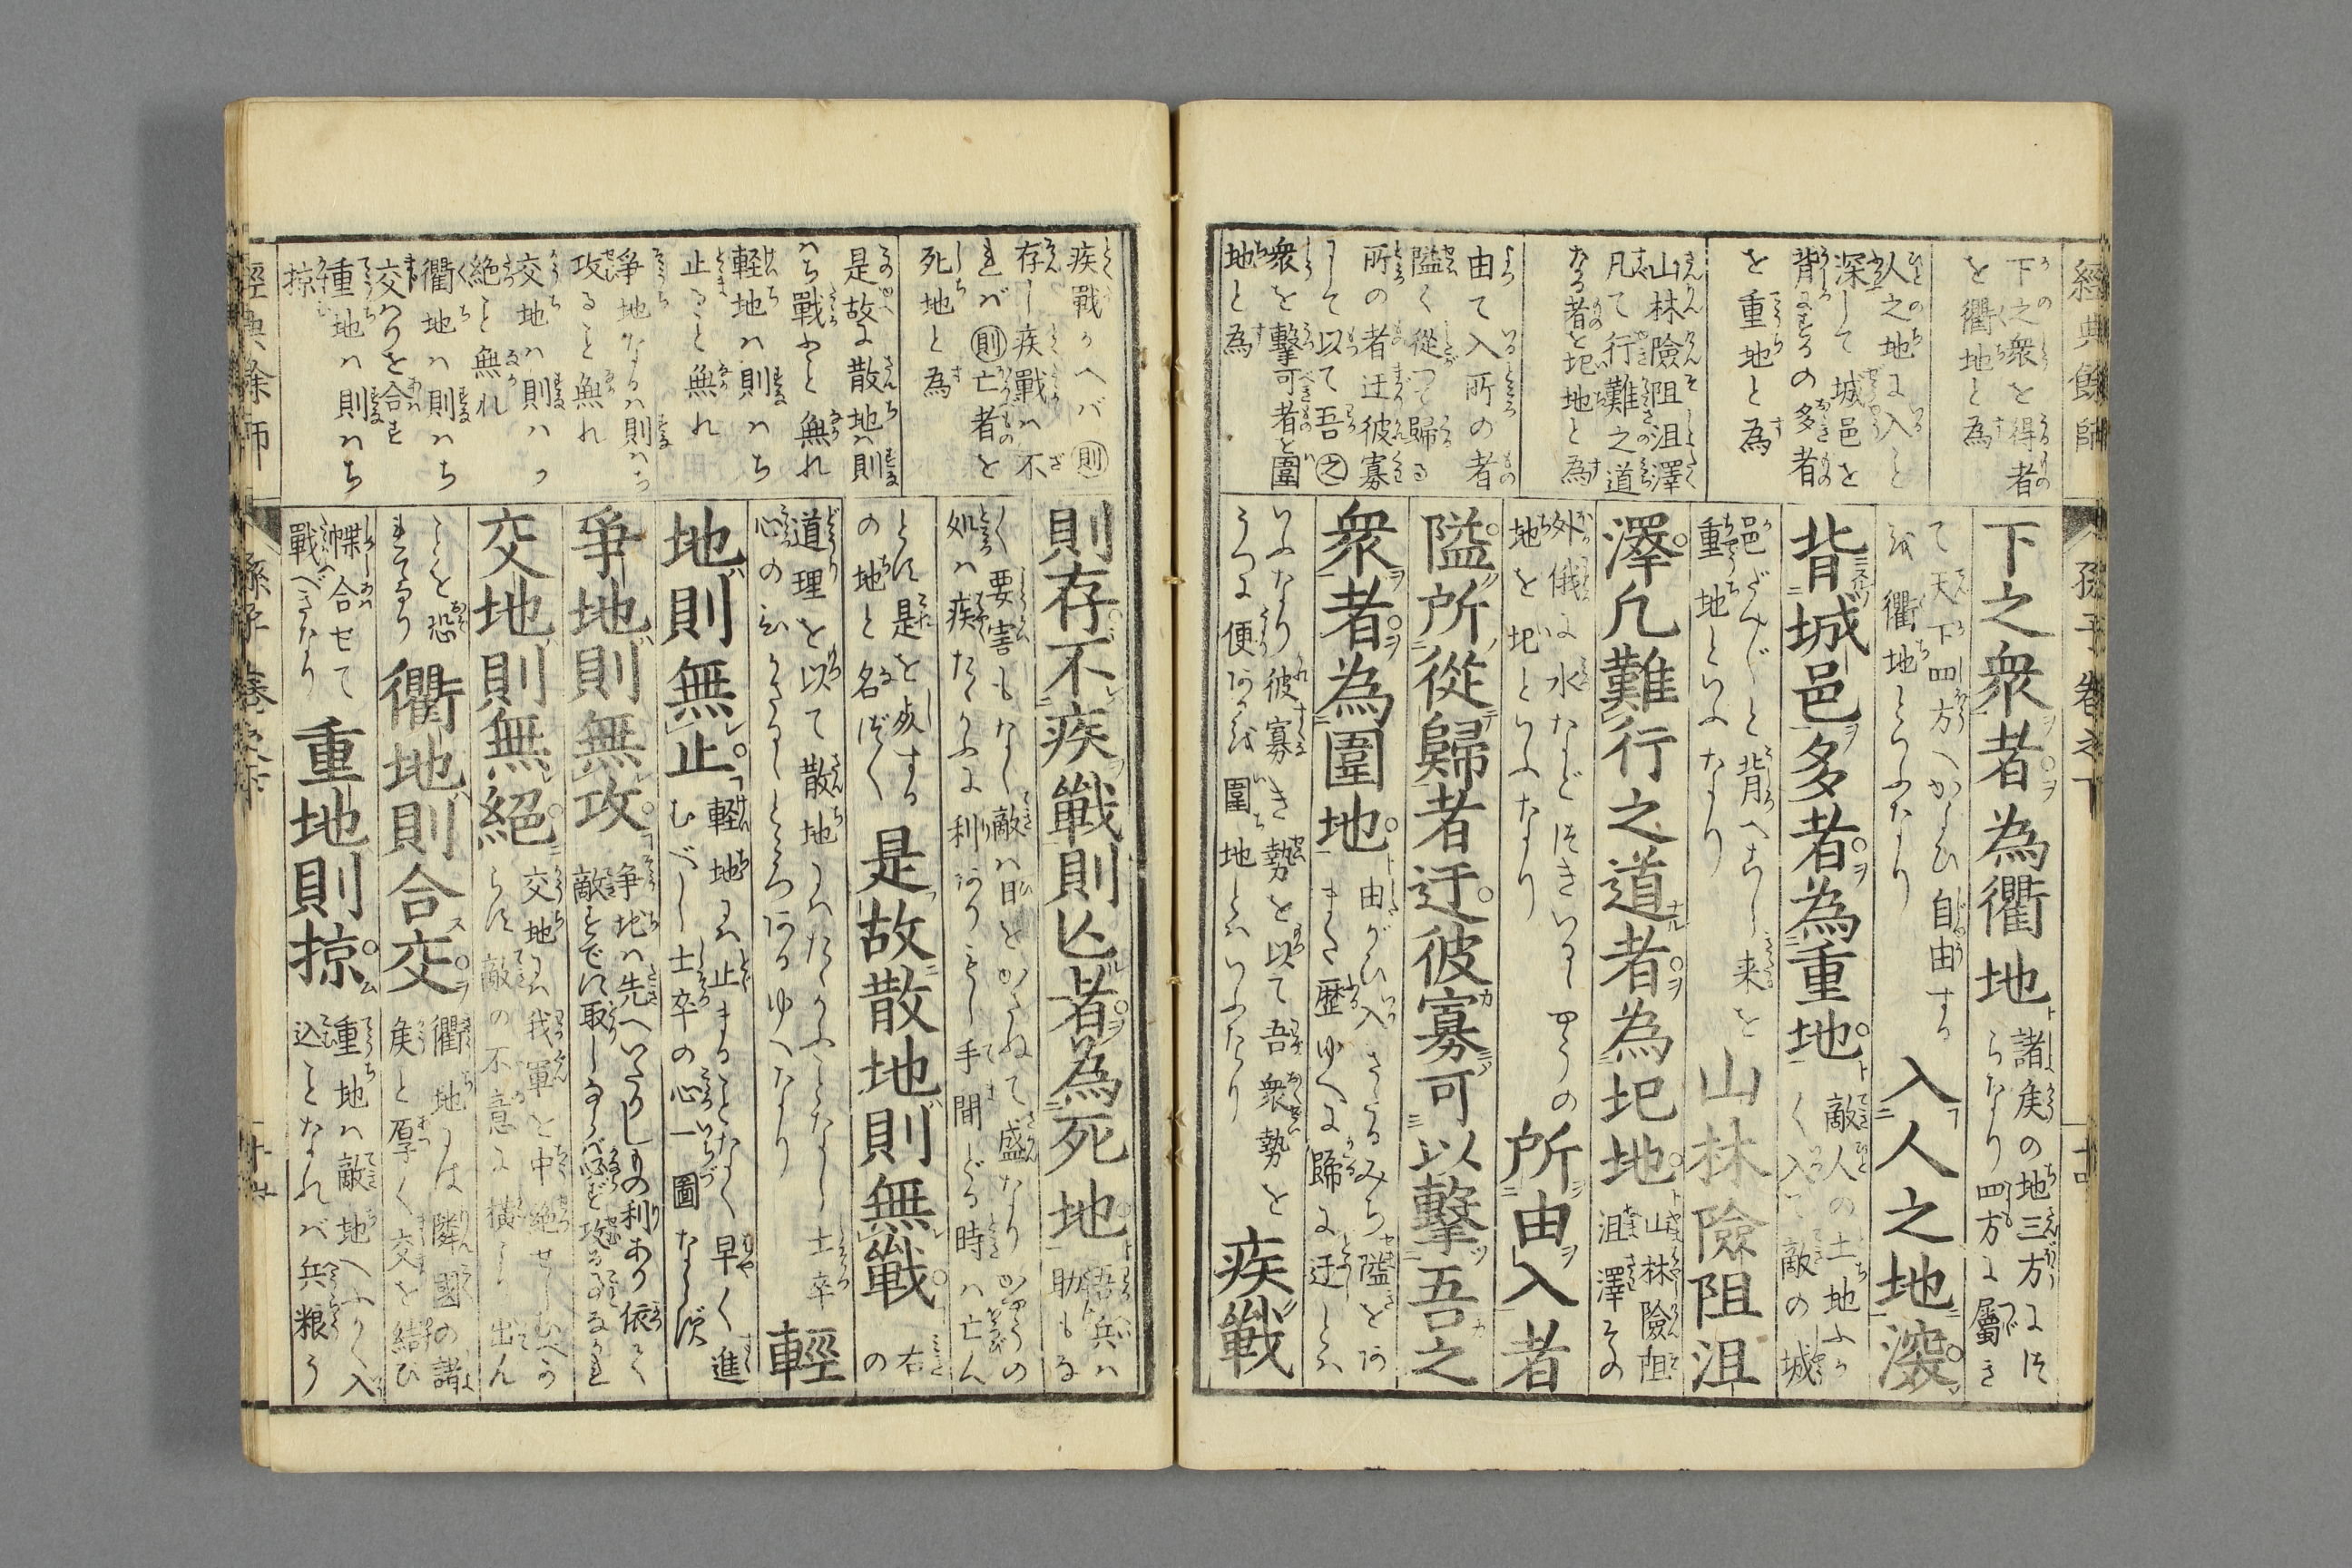 經典餘師
孫子卷之下
十四
下之衆を得者
を衢地と為
人之地に入こと
深して城邑を
背にするの多者
を重地と為
山林險阻沮澤
凡て行難之道
なる者を圮地と為
由て入所の者
隘く從つて歸る
所の者迂彼寡
して以て吾之
衆を擊可者を圍
地と為
下之衆者為衢地
諸矦の地三方につ
らなり四方に屬き
て天下四方へかよひ自由する
を衢地といふなり
入人之地深
背城邑多者為重地
敵人の土地ふか
く入て敵の城
邑だん〴〵と背へなし来を
重地といふなり
山林險阻沮
澤凡難行之道者為圮地
山林險阻
沮澤その
外俄に水などつきいるやうの
地を圮といふなり
所由入者
隘所從歸者迂彼寡可以擊吾之
衆者為圍地
由がひ入きたるみち隘をあ
また歴ゆへに歸に迂しとは
いふなり彼寡き勢を以て吾衆勢を
うつに便あるを圍地とはいふなり
疾戰
疾戰かへバ則
存し疾戰ハ不
れバ則亡者を
死地と為
是故に散地ハ則
ハち戰こと無れ
輕地ハ則ハち
止ること無れ
爭地なるハ則ハち
攻ること無れ
交地ハ則ハち
絶こと無れ
衢地ハ則ハち
交ハりを合せ
重地ハ則ハち
掠
則存不疾戰則亡者為死地
吾兵ハ
助もな
く要害もなく敵ハ日をかさねて盛なりかやうの
処ハ疾たゝかふに利あり若し手間どる時ハ亡ん
とす是を處する
の地と名づく
是故散地則無戰
右
の
道理を以て散地にハたゝかふことなし士卒
心のむかさなしところあるゆへなり
輕
地則無止
輕地にハ止まることなく早く進
むべし士卒の心一圖ならず
爭地則無攻
爭地ハ先へいたりしもの利あり依て
敵すでに取しならバ必ず攻ることなかれ
交地則無絕
交地にハ我軍を中絶せしむべか
らず敵の不意に横より出ん
ことを恐
るゝなり
衢地則合交
衢地にハ隣國の諸
矦と厚く交を結ひ
幉合せて
戰べきなり
重地則掠
重地ハ敵地へふかく入
込ことなれバ兵粮う
經典餘師
孫子卷之下